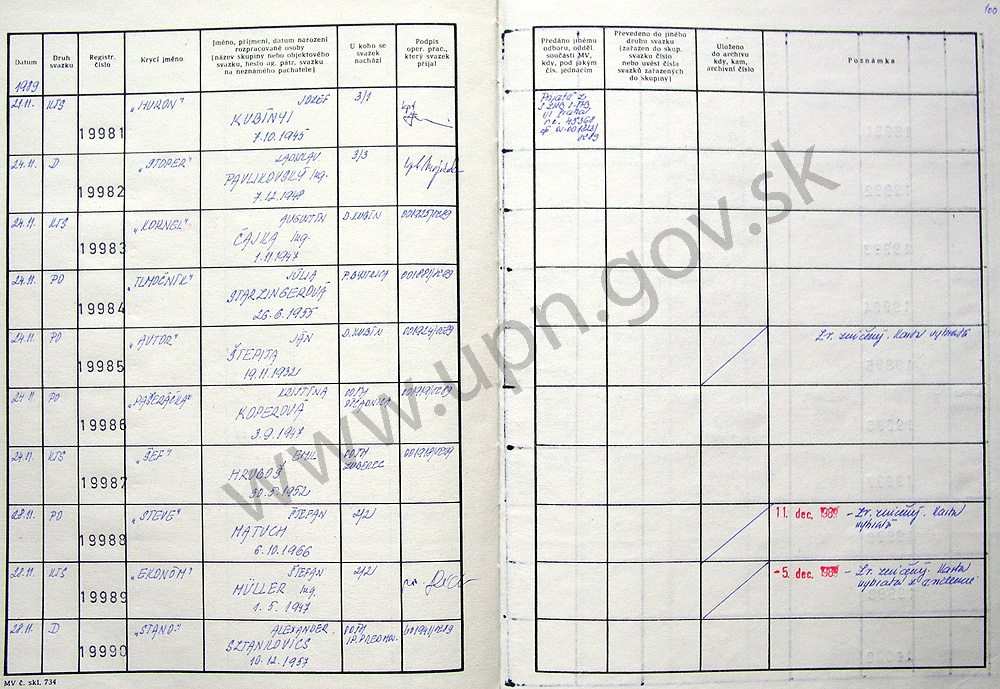 100
Datum
Druh svazku
Registr. číslo
Krycí jméno
Jméno, příjmení, datum narození
rozpracované osoby
(název skupiny nebo objektového
svazku, heslo ag. pátr. svazku
na neznámého pachatele)
U koho se
svazek
nachází
Podpis
oper. prac.,
který svazek
přijal
Předáno jinému
odboru, odděl.
součásti MV,
kdy, pod jakým
čís. jednacím
Převedeno do jiného
druhu svazku
(zařazen do skup.
svazků nebo
nebo uvést čísla
svazků zařazených
do skupiny)
Uloženo
do archivu
kdy, kam,
archivní číslo
Poznámka
1989
21.11. KTS 19981 "HURON" JOZEF 3/1
KUBÍNYI
7.10.1945
24.11. D 19982 "STOPER" LADISLAV 3/3
PAVLIKOVSKÝ Ing.
7.12.1948
24.11. KTS 19983 "KORNEL" AUGUSTÍN D.KUBÍN
ČAJKA Ing.
1.11.1947
24.11. PO 19984 "TLMOČNÍK" JÚLIA P.BYSTRICA
STARZINGEROVÁ
26.6.1955
24.11. PO 19985 "AUTOR" JÁN D.KUBÍN
ŠTEPITA
19.11.1932
Zv. zničený. Karta vybratá
24.11. PO 19986 "PAŠERÁČKA" KRISTÍNA
KOPEROVÁ
3.9.1947
24.11. KTS 19987 "ŠÉF" EMIL
HRUBOŠ ZUBEREC
30.5.1952
28.11. PO 19989 "STEVE" ŠTEFAN 2/2
MATUCH
6.10.1966
11. dec. 1989 - Zv. zničený. Karta
vybratá
28.11. KTS 19989 "EKONÓM" ŠTEFAN 2/2
MÜLLER Ing.
1. 5. 1947
-5. dec. 1989 - Zv. zničený. Karta
vybratá
28.11. D 19990 ALEXANDER
SZTANKOVICS
10.12.1957
MV č. skl. 734
www.upn.gov.sk